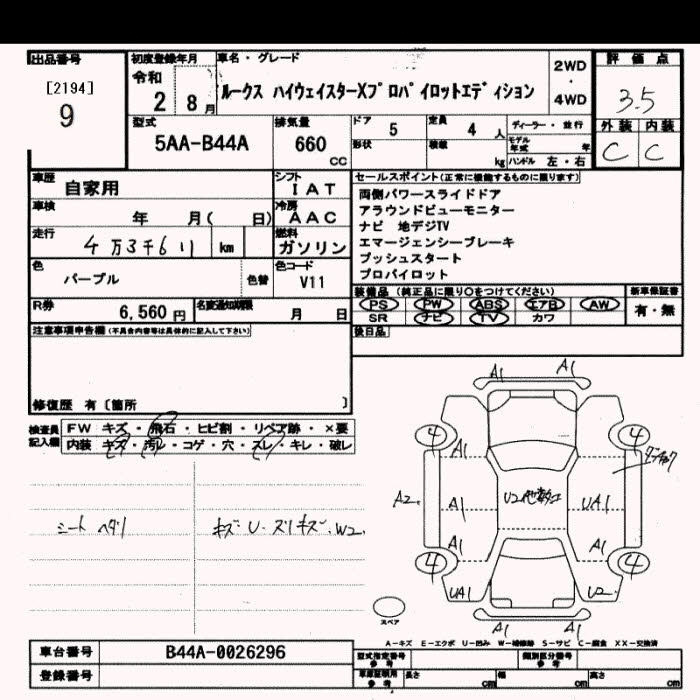 出品番号
[2194]
9
初度登録年月
令和
2 8月
車名・グレード
ルークス ハイウェイスターXプロパイロットエディション
2WD
・
4WD
評価点
3.5
型式
5AA-B44A
排気量
660
cc
ドア
5
形状
定員
4 人
積載
kg
ディーラー・並行
モデル年式 年
ハンドル 左・右
外装 内装
C C
車歴
自家用
シフト
IAT
車検
年 月( 日)
冷房
AAC
走行
4万3千611 km
燃料
ガソリン
色
パープル
色替
色コード
V11
R券
6,560円
名変通知期限
月 日
セールスポイント(正常に機能するものに限ります)
両側パワースライドドア
アラウンドビューモニター
ナビ 地デジTV
エマージェンシーブレーキ
プッシュスタート
プロパイロット
装備品(純正品に限り○をつけてください)
PS PW ABS エアB AW
SR ナビ TV カワ
新車保証書
有・無
後日品
注意事項申告欄(不具合内容等は具体的に記入して下さい)
修復歴 有〔箇所 〕
検査員記入欄
FW キズ・飛石・ヒビ割・リペア跡・×要
内装 キズ・汚レ・コゲ・穴・スレ・キレ・破レ
シート ヘタリ
キズ U・スリキズ・W2.
A1 A1
4 4
A1
A2.
A1
U2他数ヶ所
UA1
A1 A1
4 4
UA1 U2
A1 A1
スペア
A-キズ E-エクボ U-凹み W-補修跡 S-サビ C-腐食 XX-交換済
車台番号
B44A-0026296
登録番号
型式指定番号
参考
類別区分番号
参考
車庫証明用
参考
長さ cm 幅 cm 高さ cm